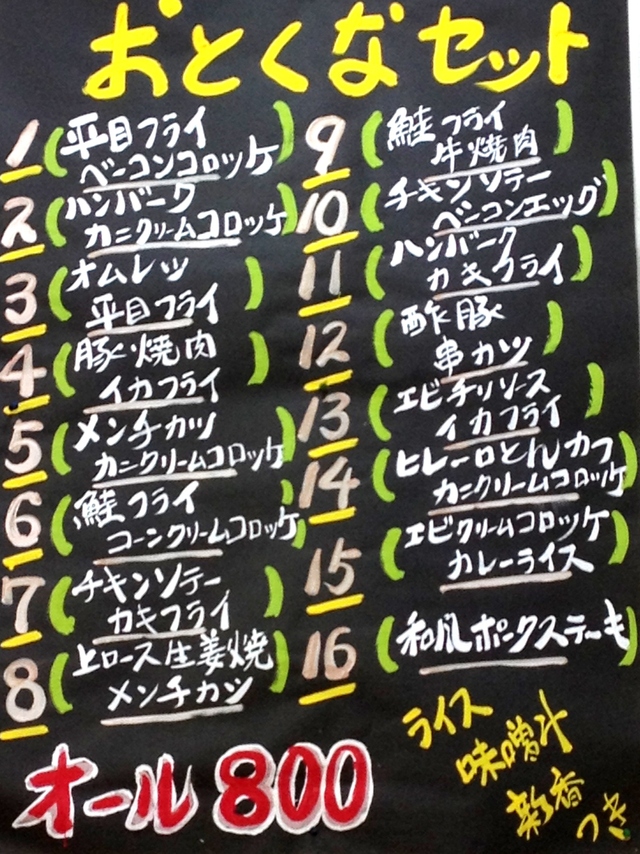 おとくなセット
1 平目フライ
ベーコンコロッケ
2 ハンバーク
カニクリームコロッケ
3 オムレツ
平目フライ
4 豚焼肉
イカフライ
5 メンチカツ
カニクリームコロッケ
6 鮭フライ
コーンクリームコロッケ
7 チキンソテー
カキフライ
8 上ロース生姜焼
メンチカツ
9 鮭フライ
牛焼肉
10 チキンソテー
ベーコンエッグ
11 ハンバーク
カキフライ
12 酢豚
串カツ
13 エビチリソース
イカフライ
14 ヒレ一口とんカツ
カニクリームコロッケ
15 エビクリームコロッケ
カレーライス
16 和風ポークステーキ
オール800
ライス
味噌汁
新香
つき